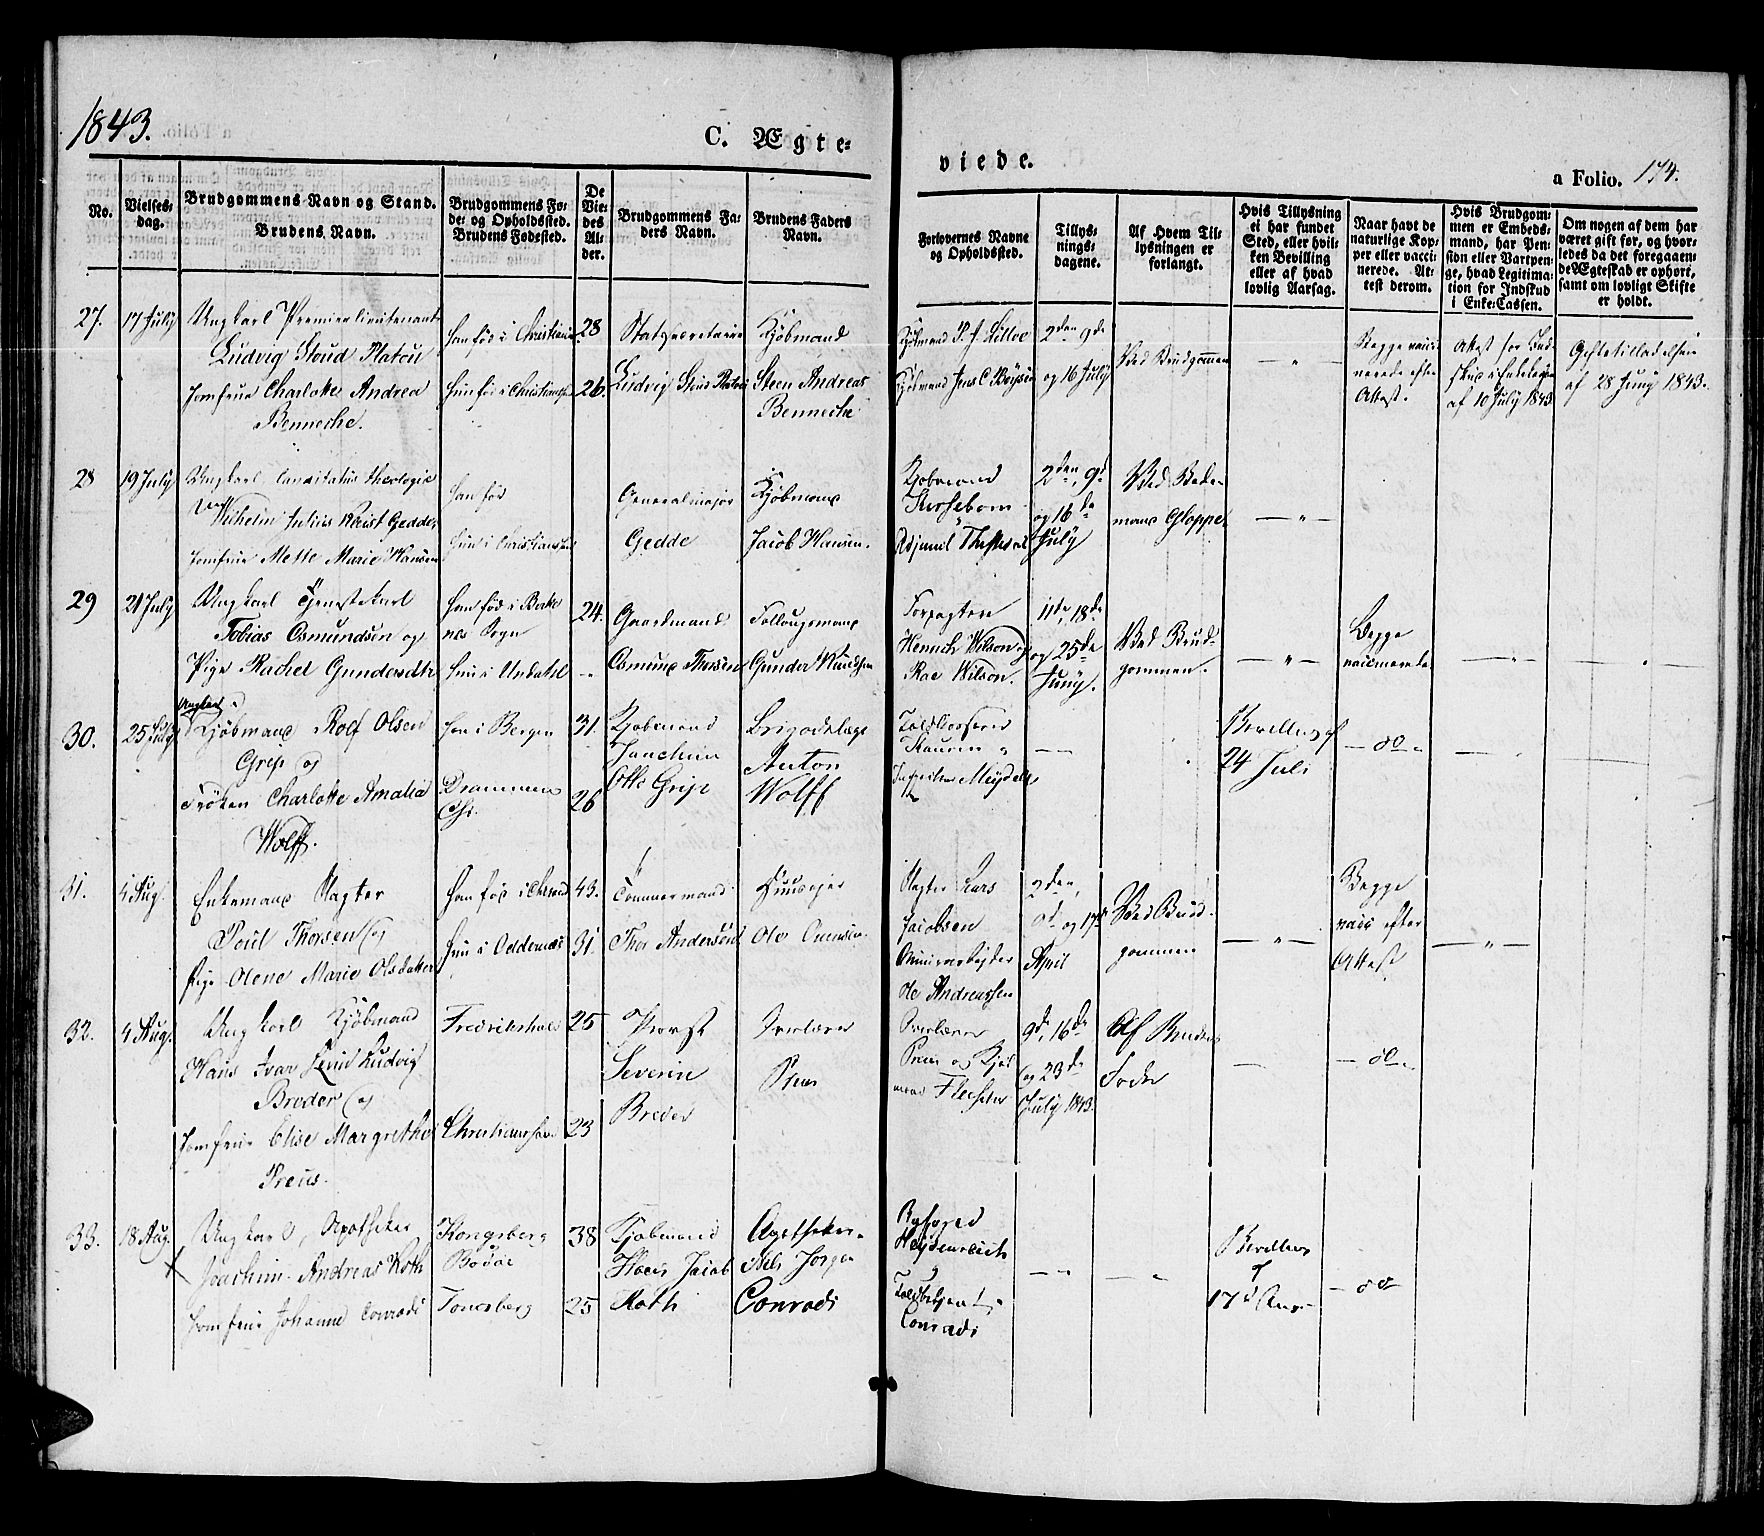 1843.
C. Ægte-
viede.
a Folio. 174.
No.
Vielses-
dag.
Brudgommens Navn og Stand.
Brudens Navn.
Brudgommens Fø-
de- og Opholdssted.
Brudens Fødested.
De
Vie-
des
Al-
der.
Brudgommens Fa-
ders Navn.
Brudens Faders
Navn.
Forlovernes Navne
og Opholdssted.
Tillys-
nings-
dagene.
Af Hvem Til-
lysningen er
forlangt.
Hvis Tillysning
ei har fundet
Sted, eller hvil-
ken Bevilling
eller af hvad
lovlig Aarsag.
Naar havt de
naturlige Kop-
per eller vacci-
nerede. At-
test derom.
Hvis Brudgom-
men er Embeds-
mand, har Pen-
sion eller Vartpen-
ge, hvad Legitima-
tion for Indskud
i Enke-Cassen.
Om nogen af dem har
været gift før, og hvor-
ledes da det foregaaen-
de Ægteskab er ophørt,
samt om lovligt Skifte
er holdt.
27.
17 July
Ungkarl Premierlieutenant
Ludvig Stoud Platou
Jomfrue Charlotte Andrea
Benneche.
han fød i Christiania
hun fød i Christiansand
28
26.
Statssecretaire
Ludvig Stoud Platou
Kjøbmand
Steen Andreas
Bennecke
Kjøbmand
Kjøbmand Jens C Boysen
2den 9de
og 16 July
Ved Brudgommen
— " —
Begge vacci-
nerede efter
Attest.
Attest for Ind-
skud i Enkekassen
af 10 July 1843
Giftetilladelsen
af 28 Juny 1843.
28
19 July
Ungkarl Candidatus theologie
Wilhelm Julius Gedde
Jomfrue Mette Marie Hansen
han fød
hun i Christiansand
Generalmajor
Gedde
Kjøbmand
Jacob Hansen.
Kjøbmand
2den, 9d
og 16de
July
Ved Bede-
mand Gloppe.
— " —
29
21 July
Ungkarl Tjenestekarl
Tobias Osmundsen og
Pige Rachel Gundersdtr
han fød i Bakke
nes Sogn
hun i Undahl
24.
"
Gaardmand
Osmund Thorsen
Gunder Knudsen
Forpagter
Henrich Wilson og
Rae Wilson.
11de, 18de
og 25de
Juny.
Ved Brud-
gommen.
— " —
Begge
vaccinerede
— " —
— " —
30.
25 July
Ungkarl
Kjøbmand Rolf Olsen
Grip og
Frøken Charlotte Amalia
Wolff.
han i Bergen
Drammen
31.
26
Kjøbmand
Joachim
Otto Grip
Brigadelæge
Anton
Wolff
Toldkasserer
— —
Bevilling af
24 Juli
— do —
— " —
31.
4 Aug.
Enkemand Slagter
Poul Thorsen og
Pige Olene Marie Olsdatter
hun i Oddernes
43.
31.
Tømmermand
Thor Andersen
Huuseier
Ole
Slagter Lars
Jacobsen
Ole Andreassen
2den,
9d og 17d
April
Ved Brud-
gommen
— " —
Begge
vacc efter
Attest
— " —
32.
4 Aug.
Ungkarl Kjøbmand
Hans Ivar Lund Ludvig
Breder og
Jomfrue Elise Margrethe
Preus.
Fredrikshald
Christiansand
25
23
Provst
Severin
Breder
Overlærer
Preus
Overlærer
Preus og Kjøb-
mand
9de, 16de
og 23de
July 1843.
Af Brudens
Fader
—
— do —
33.
18 Aug.
Ungkarl, Apotheker
Joachim Andreas Roth
Jomfrue Johanne Conradi
Kongsberg
Bodøe
Tønsberg
38
25
Kjøbmand
Jacob
Roth
Apotheker
Niels Jørgen
Conradi
Byfoged
Heydenreich
Toldbetjent
Conradi
— " —
— " —
Bevilling
af
17d Aug.
— do —